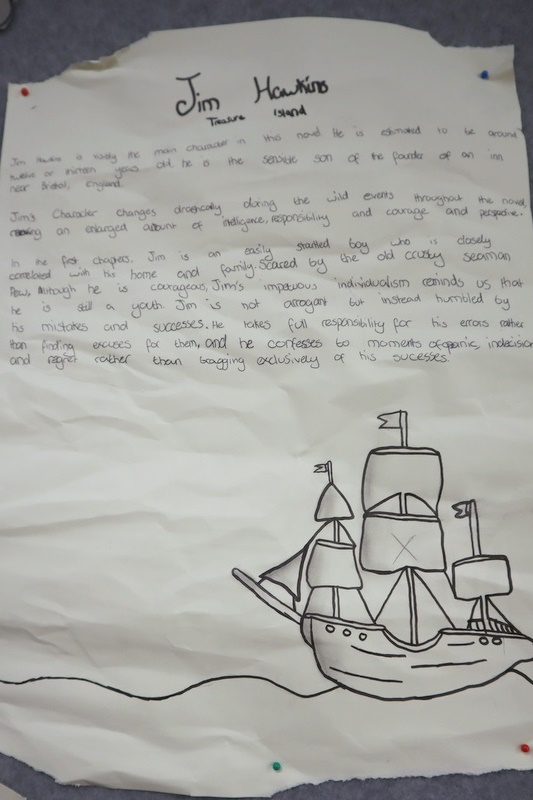 Jim Hawkins
Treasure Island
Jim Hawkins is the main character in this novel. He is estimated to be around
twelve or thirteen years old, he is the sensible son of the founder of an inn
near Bristol, England.
Jim's Character changes drastically during the wild events throughout the novel,
an enlarged amount of intelligence, responsibility and courage and perspective.
In the first chapters, Jim is an easily startled boy who is closely
correlated with his home and family. Scared by the old crusty seaman
Pew, Although he is courageous, Jim's impetuous individualism reminds us that
he is still a youth. Jim is not arrogant but instead humbled by
his mistakes and successes. He takes full responsibility for his errors rather
than finding excuses for them, and he confesses to moments of panic, indecision
and regret rather than bragging exclusively of his sucesses.